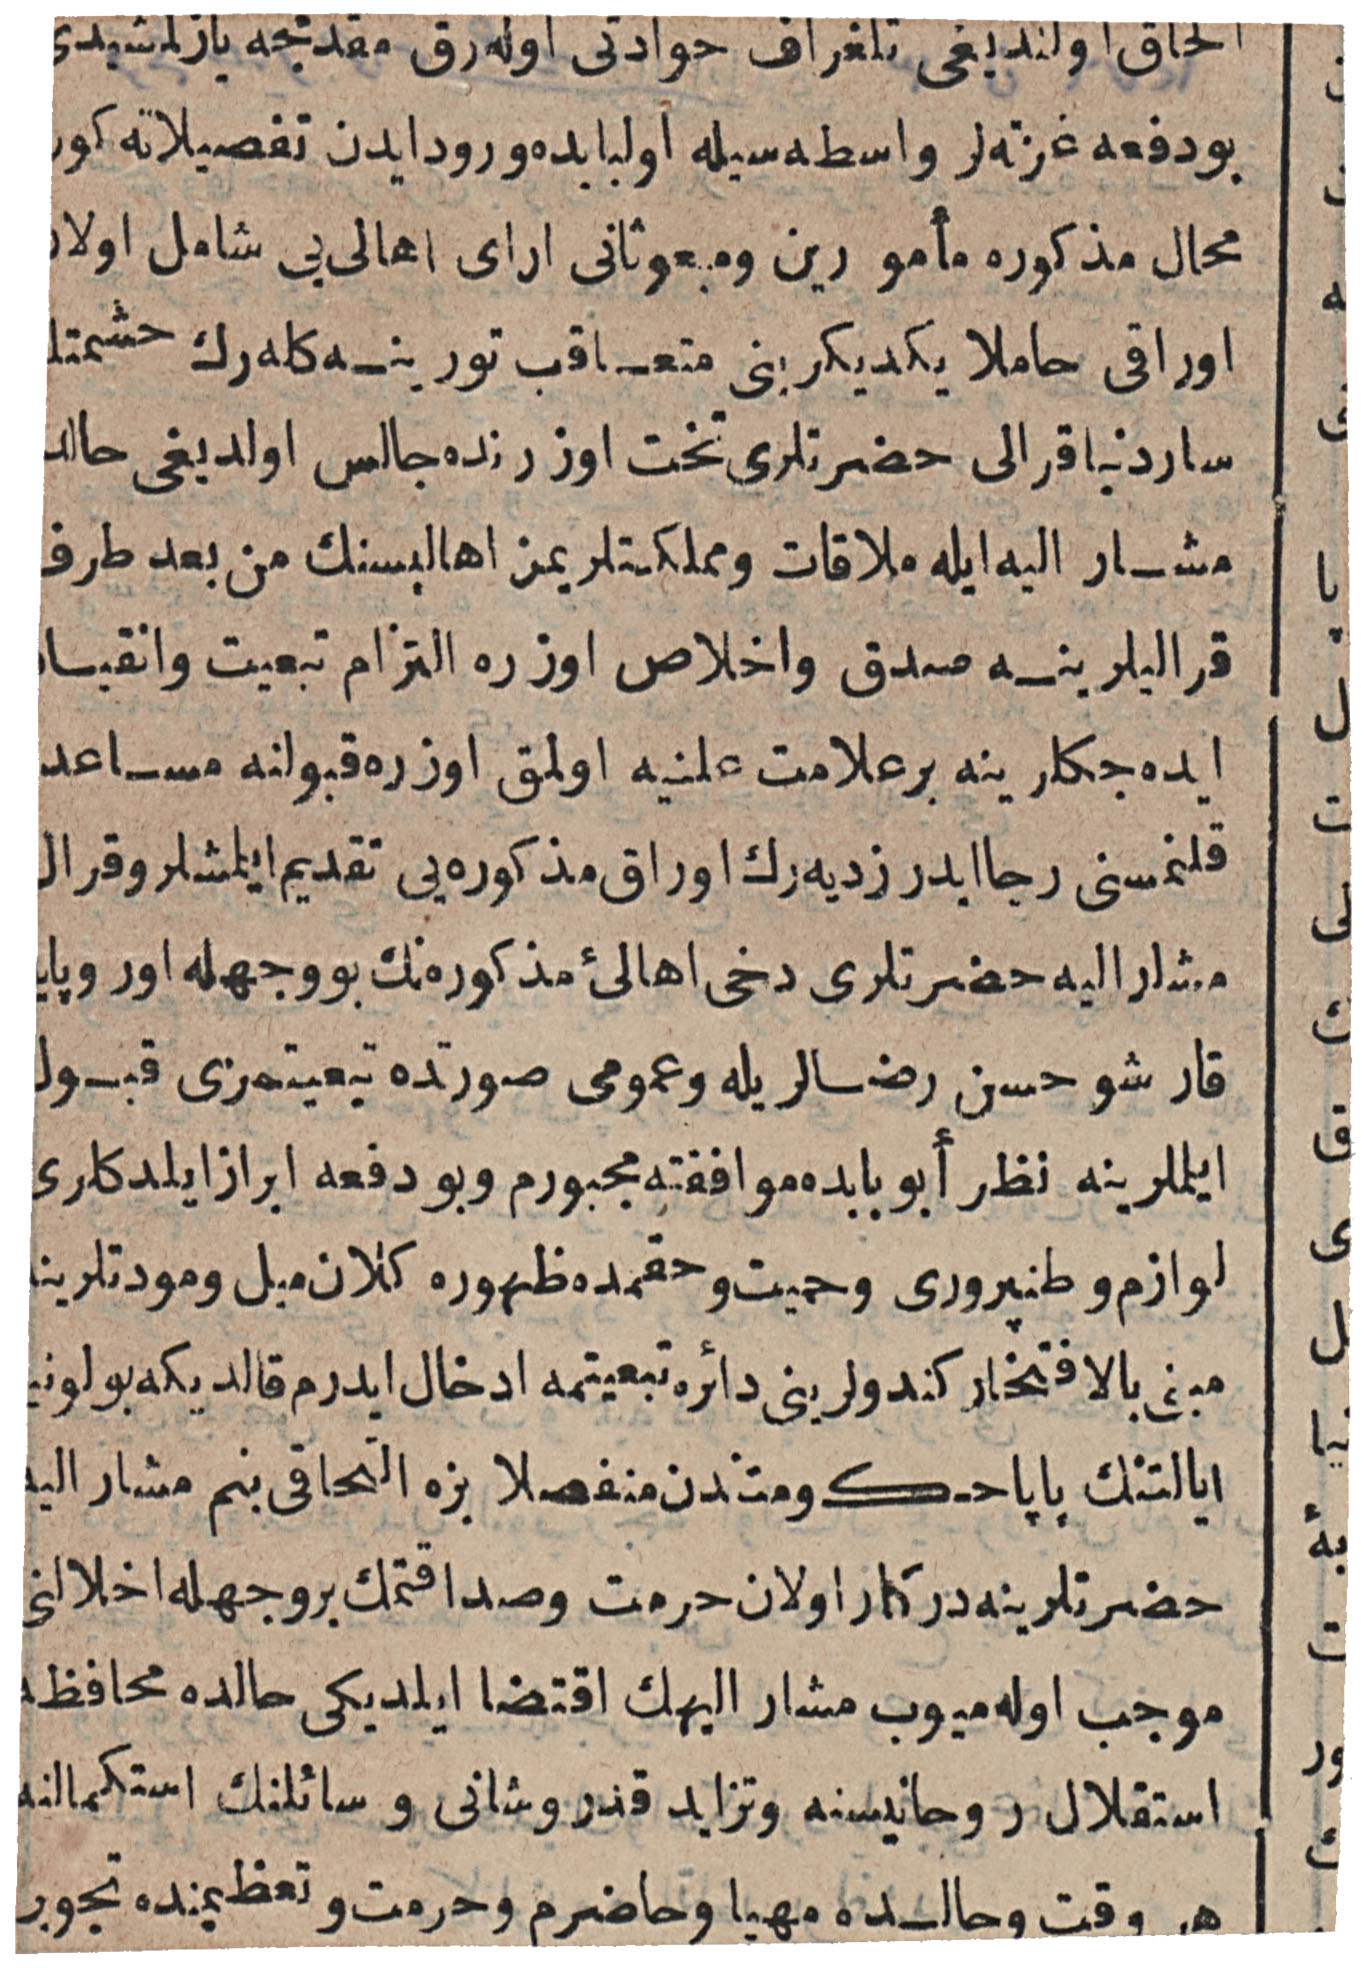 الحاق اولنديغی تلغراف حوادثی اوله رق مقدمجه يازلمشيدی
بودفعه غزته لر واسطه سيله اولبابده ورود ايدن تفصيلاته كور
محال مذكوره مأمورين ومبعوثانی ارای اهالی يی شامل اولان
اوراقی حاملا يكديكرينی متعاقب تورينه كله رك حشمتلو
ساردنيا قرالی حضرتلری تخت اوزرنده جالس اولديغی حالد
مشار اليه ايله ملاقات ومملكتلريمز اهاليسنك من بعد طرف
قراليلرينه صدق واخلاص اوزره التزام تبعيت وانقياد
ايده جكلرينه برعلامت علنيه اولمق اوزره قبولنه مساعد
قلنمسنی رجا ايدرز ديه رك اوراق مذكوره يی تقديم ايلمشلر وقرال
مشار اليه حضرتلری دخی اهالیٔ مذكوره نك بووجهله اوروپايه
قارشو حسن رضالريله وعمومی صورتده تبعيتمزی قبول
ايللرينه نظرأ بوبابده موافقته مجبورم وبودفعه ابراز ايلدكلری
لوازم وطنپروری وحميت وحقمده ظهوره كلان ميل ومودتلرينه
مبنی بالافتخار كندولرينی دائره تبعيتمه ادخال ايدرم قالديكه بولونيا
ايالتنك پاپا حكومتندن منفصلا بزه التحاقی بنم مشار اليه
حضرتلرينه دركار اولان حرمت وصداقتمك بروجهله اخلالنی
موجب اوله ميوب مشار اليهك اقتضا ايلديكی حالده محافظه
استقلال روحانيسنه وتزايد قدر وشانی وسائلنك استكمالنه
هر وقت وحالده مهيا وحاضرم وحرمت وتعظيمنده تجويز